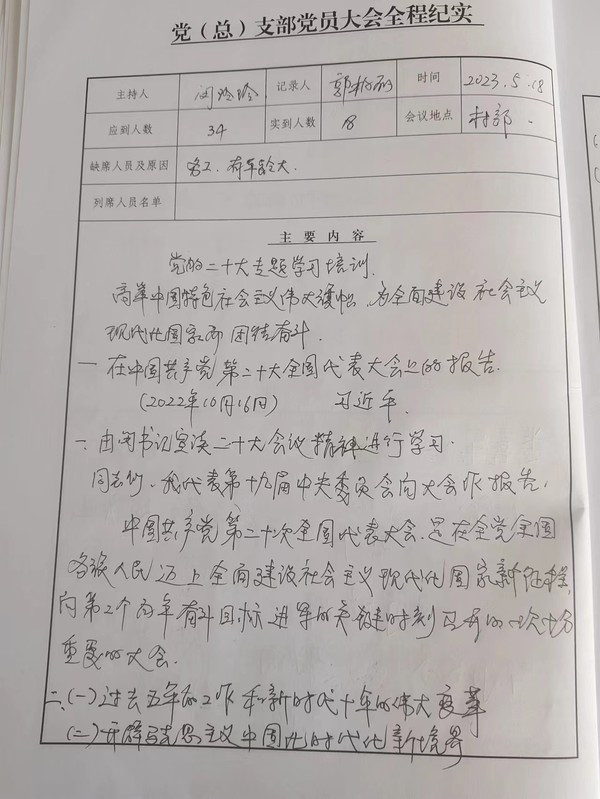 党（总）支部党员大会全程纪实
主持人 闵 记录人 郭 时间 2023.5.18
应到人数 34 实到人数 18 会议地点 村部
缺席人员及原因 务工、有年龄大.
列席人员名单
主要内容
党的二十大专题学习培训.
高举中国特色社会主义伟大旗帜 为全面建设社会主义
现代化国家而团结奋斗.
一 在中国共产党第二十大全国代表大会上的报告.
(2022年10月16日) 习近平.
一. 由闵书记宣读二十大会议精神进行学习.
同志们、我代表第十九届中央委员会向大会作报告.
中国共产党第二十次全国代表大会.是在全党全国
各族人民迈上全面建设社会主义现代化国家新征程,
向第2个百年奋斗目标进军的关键时刻召开的一次十分
重要的大会.
二、(一)过去五年的工作和新时代十年的伟大变革
(二)开辟马克思主义中国化时代化新境界